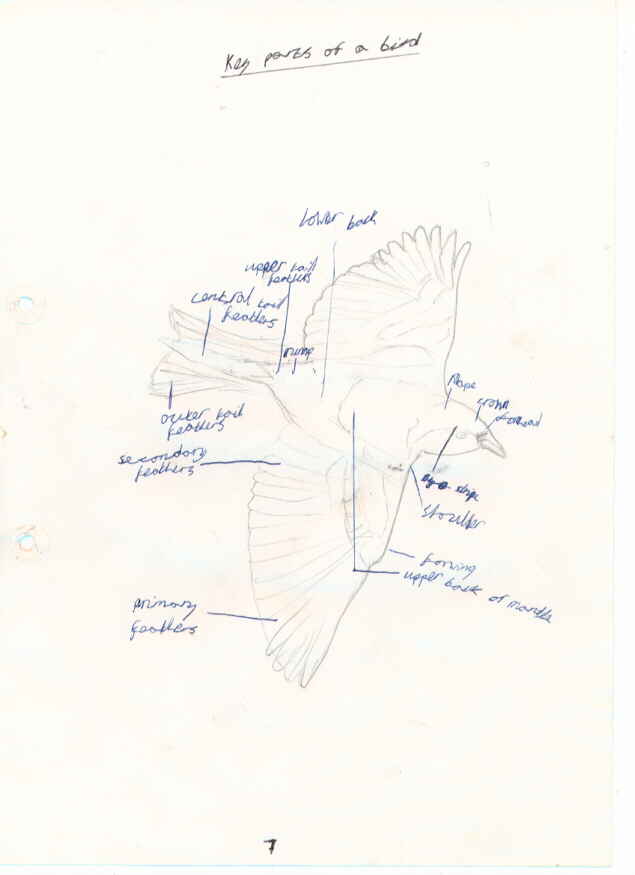 Key parts of a bird
Lower back
upper tail
feathers
central tail
feathers
rump
Nape
crown
forehead
outer tail
feathers
secondary
feathers
eye stripe
shoulder
forwing
upper back or mantle
primary
feathers
7